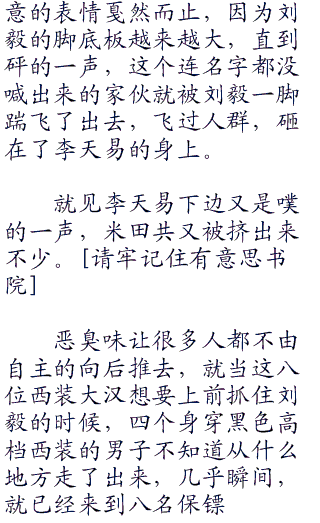 意的表情戛然而止，因为刘
毅的脚底板越来越大，直到
砰的一声，这个连名字都没
喊出来的家伙就被刘毅一脚
踹飞了出去，飞过人群，砸
在了李天易的身上。
就见李天易下边又是噗
的一声，米田共又被挤出来
不少。[请牢记住有意思书
院]
恶臭味让很多人都不由
自主的向后推去，就当这八
位西装大汉想要上前抓住刘
毅的时候，四个身穿黑色高
档西装的男子不知道从什么
地方走了出来，几乎瞬间，
就已经来到八名保镖